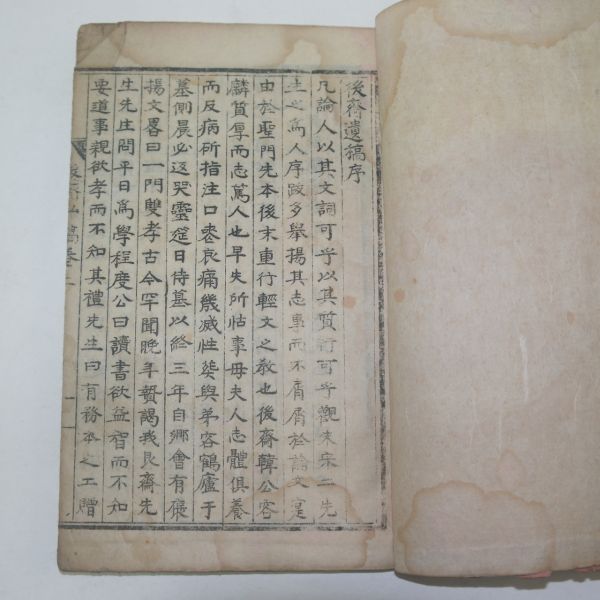 後齋遺稿序
凡論人以其文詞可乎以其質行可乎觀朱宋二先
生之爲人序跋多舉揚其志事而不屑屑於論文寔
由於聖門先本後末重行輕文之敎也後齋韓公容
麟質厚而志篤人也早失所怙事母夫人志體俱養
而及病所指注口柰哀痛幾滅性葬與弟容鶴廬于
墓側晨必返哭靈筵日侍墓以終三年自鄕會有褒
揚文畧曰一門雙孝古今罕聞晩年贄謁我艮齋先
生先生問平日爲學程度公曰讀書欲益智而不知
要道事親欲孝而不知其禮先生曰有務本之工贈
後齋 稿卷